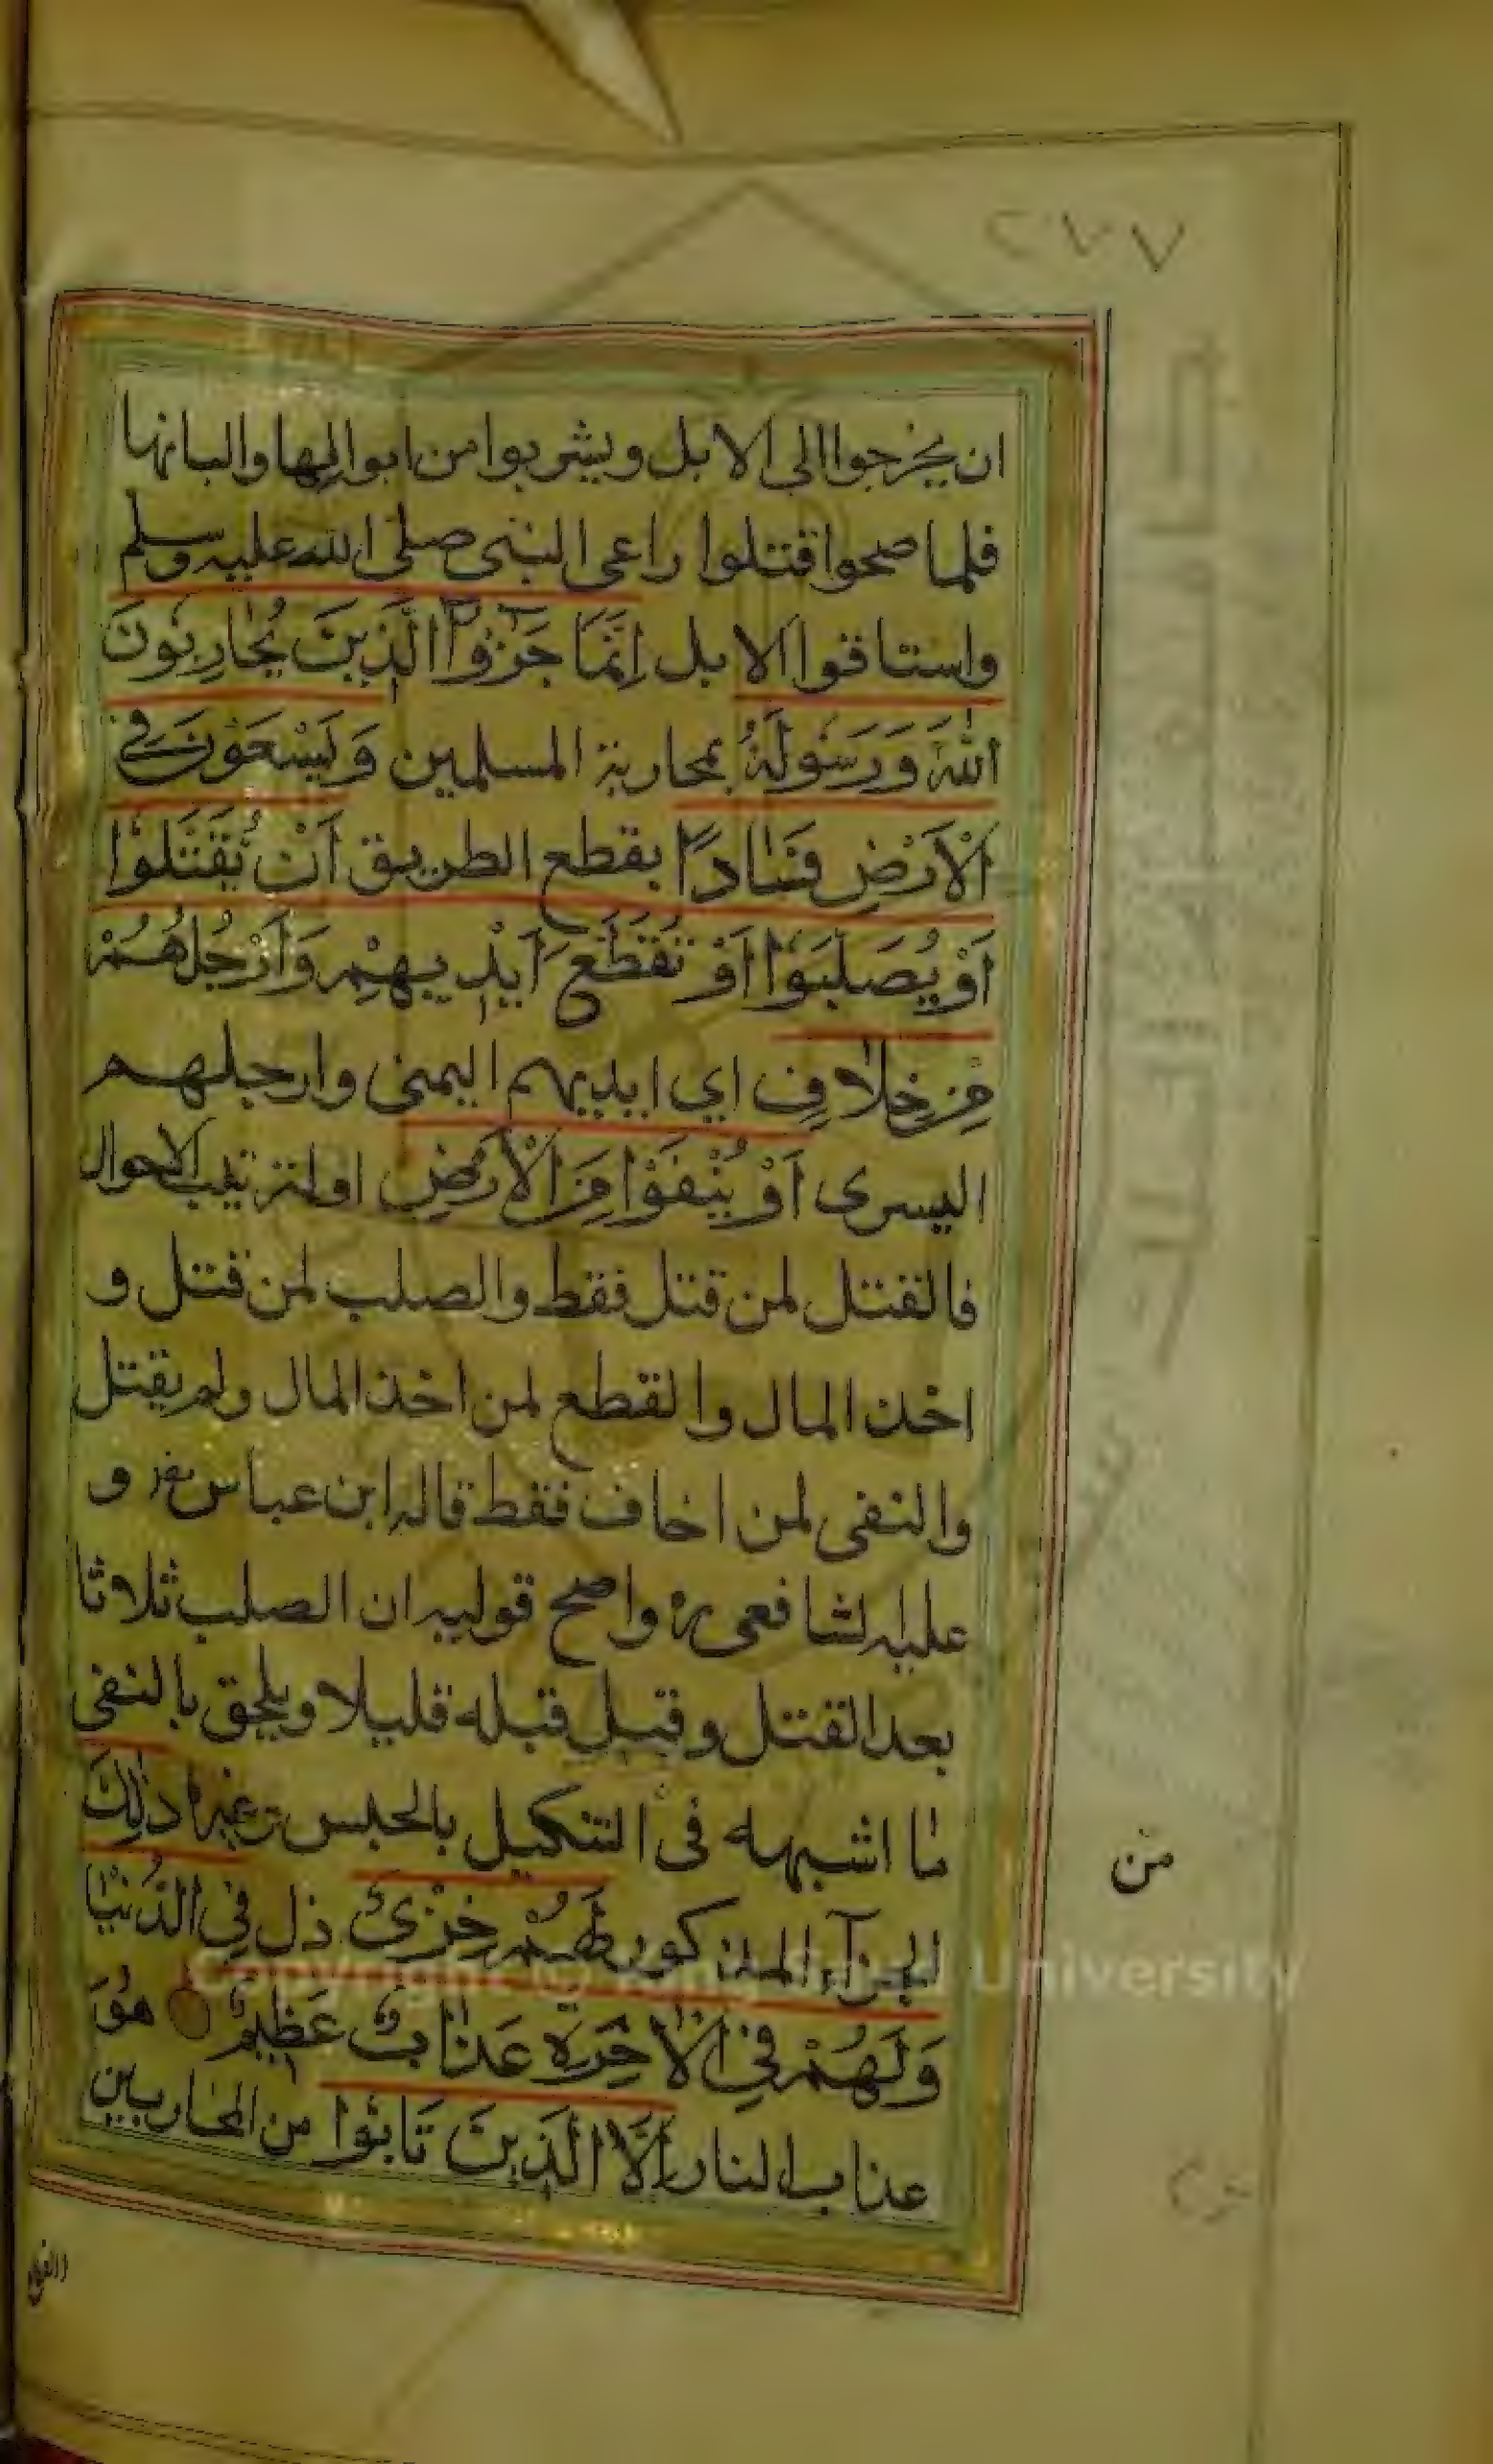 ٢٧٧
ان يخرجوا الى الابل ويشربوا من ابوالها والبانها
فلما صحوا قتلوا راعى النبى صلى الله عليه وسلم
واستاقوا الابل اِنَّمَا جَزٰٓؤُا الَّذِينَ يُحَارِبُونَ
اللّٰهَ وَرَسُولَهُ بمحاربة المسلمين وَيَسْعَوْنَ فِى
الْاَرْضِ فَسَادًا بقطع الطريق اَنْ يُقَتَّلُوْا
اَوْ يُصَلَّبَوْا اَوْ تُقَطَّعَ اَيْدِيهِمْ وَاَرْجُلُهُمْ
مِنْ خِلَافٍ اي ايديهم اليمنى وارجلهم
اليسرى اَوْ يُنْفَوْا مِنَ الْاَرْضِ او لترتيب الاحوال
فالقتل لمن قتل فقط والصلب لمن قتل و
اخذ المال والقطع لمن اخذ المال ولم يقتل
والنفى لمن اخاف فقط قاله ابن عباس و
عليه لشافعى ره واصح قوليه ان الصلب ثلاثا
بعد القتل وقيل قبله قليلا ويلحق بالنفى
ما اشبهه فى التنكيل بالحبس وغيره ذٰلِكَ
الجزآء المذكور لَهُمْ خِزْىٌ ذل فِى الدُّنْيَا
وَلَهُمْ فِى الْاٰخِرَةِ عَذَابٌ عَظِيمٌ هُوَ
عذاب النار اِلَّا الَّذِينَ تَابُوا من المحاربين
من
Copyright © King Saud University